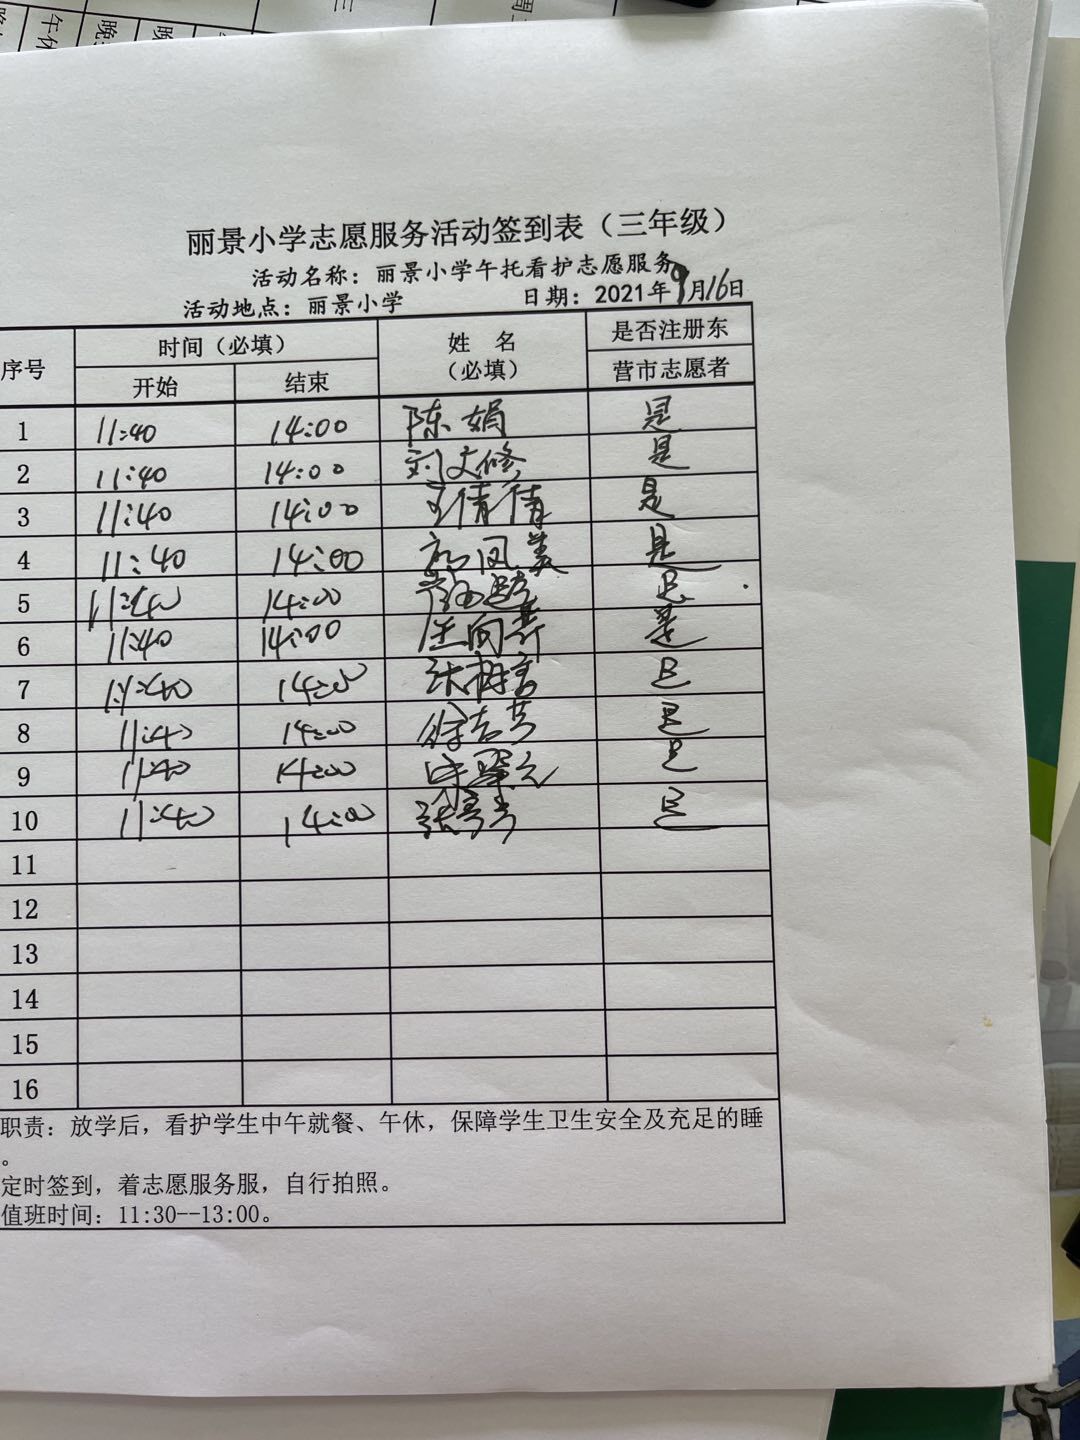 丽景小学志愿服务活动签到表（三年级）
活动名称：丽景小学午托看护志愿服务
活动地点：丽景小学 日期：2021年9月16日
序号 时间（必填） 开始 结束 姓名（必填） 是否注册东营市志愿者
1 11:40 14:00 陈娟 是
2 11:40 14:00 刘文修 是
3 11:40 14:00 王倩倩 是
4 11:40 14:00 凤美 是
5 11:40 14:00 是
6 11:40 14:00 任向荞 是
7 11:40 14:00 张树 是
8 11:40 14:00 徐志芳 是
9 11:40 14:00 翠元 是
10 11:40 14:00 张青青 是
11
12
13
14
15
16
职责：放学后，看护学生中午就餐、午休，保障学生卫生安全及充足的睡
。
定时签到，着志愿服务服，自行拍照。
值班时间：11:30--13:00。